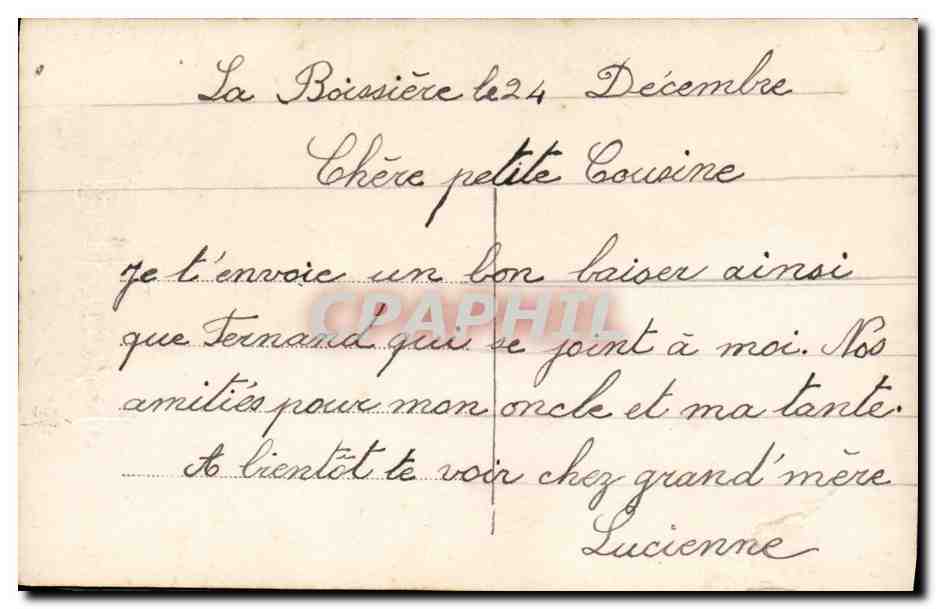 La Boissière le 24 Décembre
Chère petite Cousine
Je t'envoie un bon baiser ainsi
CPAPHIL
que Fernand qui se joint à moi. Nos
amitiés pour mon oncle et ma tante.
A bientôt te voir chez grand'mère
Lucienne